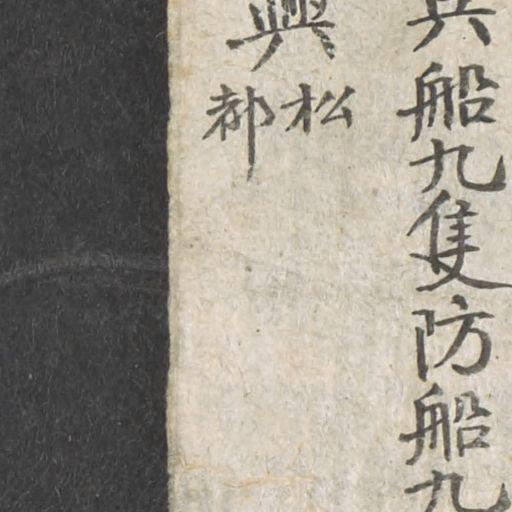 兵船九隻防船九
興
松
都